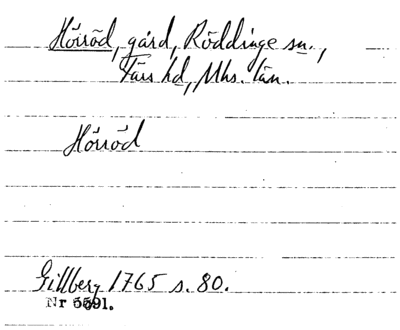 Hörröd, gård, Röddinge sn.,
Färs hd, Mhs. län.
Hörröd
Gillberg 1765 s. 80.
Nr 5591.